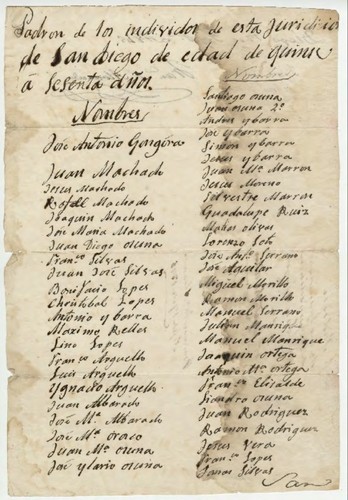 Padron de los individos de esta Juridicion
de San Diego de edad de quinse
á Sesenta años.
Nombres
José Antonio Gongora
Juan Machado
Jesus Machado
Rafael Machado
Joaquin Machado
José Maria Machado
Juan Diego osuna
Franco Silvas
Juan José Silvas
Bonifacio Lopes
Christobal Lopes
Antonio ybarra
Maximo Belles
Lino Lopes
Franco Arguello
Luis Arguello
Ygnacio Arguello
Juan Albarado
José Ma. Albarado
José Ma. oroco
Juan Ma. osuna
José ylario osuna
Nombres
Santiago osuna
Juan osuna 2o
Andres ybarra
José ybarra
Simon ybarra
Jesus ybarra
Juan Ma. Marron
Jesus Moreno
Silvestre Marron
Guadalupe Ruiz
Matias olivas
Lorenzo Soto
José Anto. Serrano
José Aguilar
Miguel Morillo
Ramon Morillo
Manuel Serrano
Julian Manriq
Manuel Manrique
Joaquin ortega
Antonio Ma. ortega
Franco Elisalde
Lisandro osuna
Juan Rodriguez
Ramon Rodriguez
Jesus Vera
Franco Lopes
Silvas
San